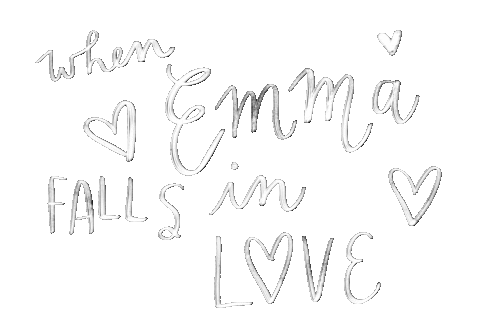 when
Emma
FALLS in
LOVE